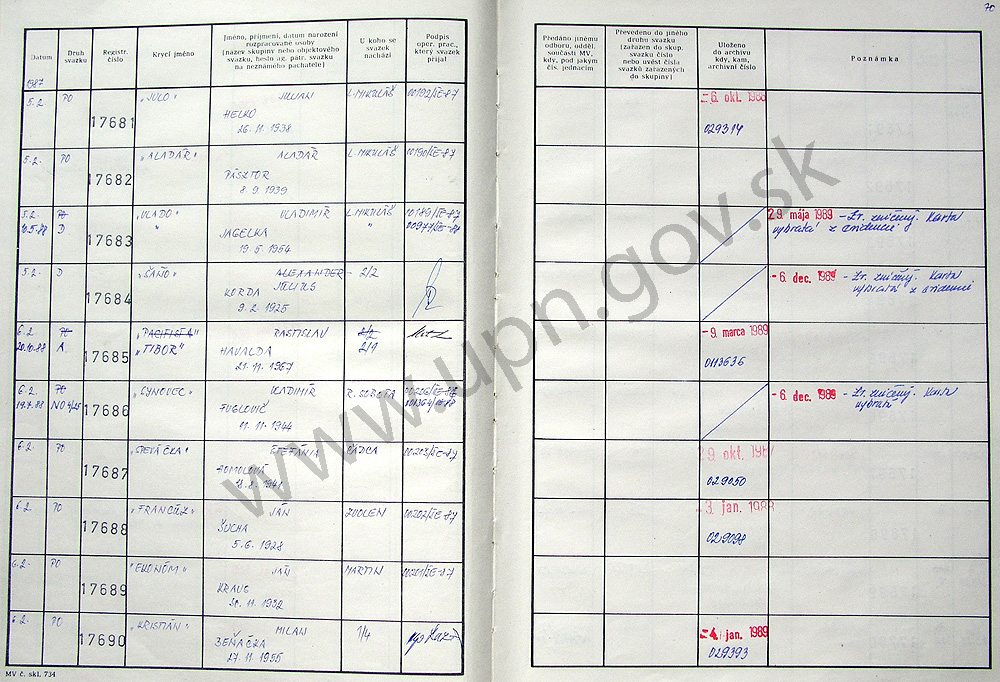 70
Datum
Druh svazku
Registr. číslo
Krycí jméno
Jméno, příjmení, datum narození
rozpracované osoby
(název skupiny nebo objektového
svazku, heslo ag. pátr. svazku
na neznámého pachatele)
U koho se
svazek
nachází
Podpis
oper. prac.,
který svazek
přijal
Předáno jinému
odboru, odděl.
součásti MV,
kdy, pod jakým
čís. jednacím
Převedeno do jiného
druhu svazku
(zařazen do skup.
svazku číslo
nebo uvést čísla
svazků zařazených
do skupiny)
Uloženo
do archivu
kdy, kam,
archivní číslo
Poznámka
1987
5.2. PO 17681 "JULO" JULIAN L. MIKULÁŠ 00192/ŠE-87
HELKO
26.11.1938
-6. okt. 1988
029314
5.2. PO 17682 "ALADÁR" ALADÁR L. MIKULÁŠ 00190/ŠE-87
PÁSZTOR
8.9.1939
5.2. PO 17683 "VLADO" VLADIMÍR L. MIKULÁŠ 00189/ŠE-87
10.5.88 D " JAGELKA " 00977/ŠE-88
19.5.1964
29. mája 1989 - Zv. zničený. Karta
vybratá z evidencie
5.2. D 17684 "ŠAŇO" ALEXANDER - 2/2
JÚLIUS
KORDA
9.2.1925
-6. dec. 1989 - Zv. zničený. Karta
vybratá z evidencie
6.2. PO 17685 "PACIFISTA" RASTISLAV 2/2
20.10.88 A "TIBOR" HAVALDA 2/1
21.11.1967
-9. marca 1989
0113636
6.2. PO 17686 "SYNOVEC" VLADIMÍR R. SOBOTA
NO FUGLOVIČ
11.11.1944
-6. dec. 1989 - Zv. zničený. Karta
vybratá
6.2. PO 17687 "SPEVÁČKA" ŠTEFÁNIA ČADCA 00203/ŠE-87
HOMOLOVÁ
18.8.1941
29. okt. 1987
029050
6.2. PO 17688 "FRANCÚZ" JÁN ZVOLEN 00202/ŠE-87
ŠUCHA
5.6.1928
-3. jan. 1988
029098
6.2. PO 17689 "EKONÓM" JÁN MARTIN 00201/ŠE-87
KRAUS
30.11.1932
6.2. PO 17690 "KRISTIÁN" MILAN 1/4
BEŇAČKA
27.11.1955
-4. jan. 1989
029393
MV č. skl. 734
www.upn.gov.sk